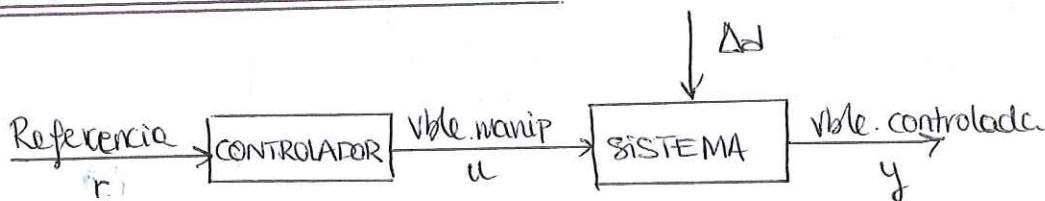 Δd
Referencia
r
CONTROLADOR
vble.manip
u
SISTEMA
vble.controlada
y